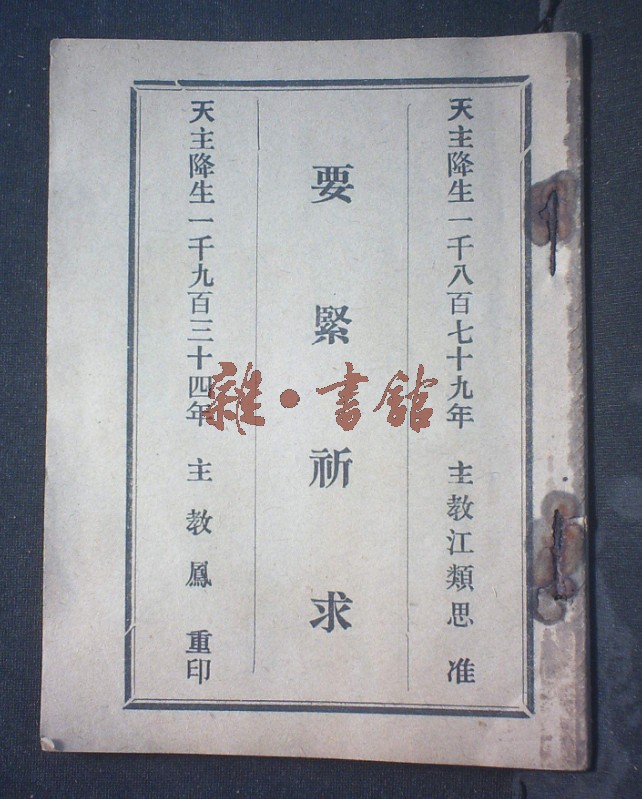 天主降生一千八百七十九年 主教江類思 准
要緊祈求
天主降生一千九百三十四年 主教鳳 重印
雜·書館